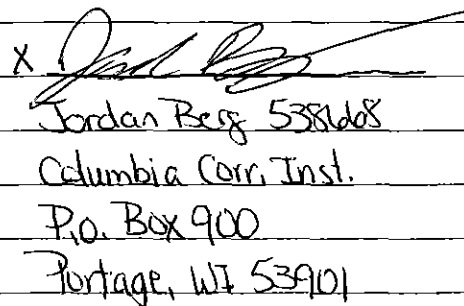 X
Jordan Berg 538668
Columbia Corr. Inst.
P.O. Box 900
Portage, WI 53901